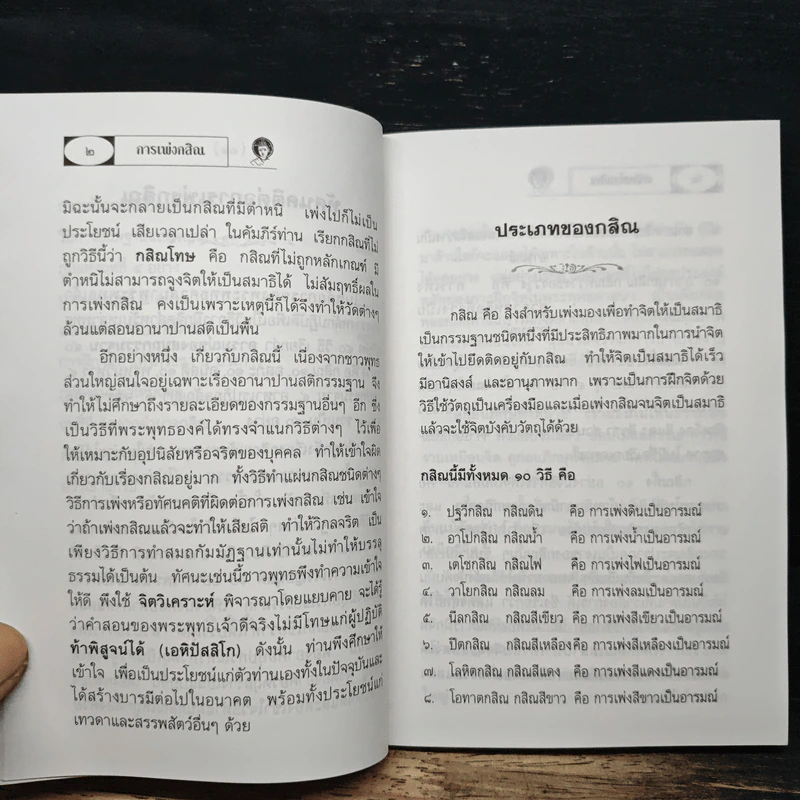 ๒
การเพ่งกสิณ
มิฉะนั้นจะกลายเป็นกสิณที่มีตำหนิ เพ่งไปก็ไม่เป็น
ประโยชน์ เสียเวลาเปล่า ในคัมภีร์ท่าน เรียกกสิณที่ไม่
ถูกวิธีนี้ว่า กสิณโทษ คือ กสิณที่ไม่ถูกหลักเกณฑ์ มี
ตำหนิไม่สามารถจูงจิตให้เป็นสมาธิได้ ไม่สัมฤทธิ์ผลใน
การเพ่งกสิณ คงเป็นเพราะเหตุนี้ก็ได้จึงทำให้วัดต่างๆ
ล้วนแต่สอนอานาปานสติเป็นพื้น
อีกอย่างหนึ่ง เกี่ยวกับกสิณนี้ เนื่องจากชาวพุทธ
ส่วนใหญ่สนใจอยู่เฉพาะเรื่องอานาปานสติกรรมฐาน จึง
ทำให้ไม่ศึกษาถึงรายละเอียดของกรรมฐานอื่นๆ อีก ซึ่ง
เป็นวิธีที่พระพุทธองค์ได้ทรงจำแนกวิธีต่างๆ ไว้เพื่อ
ให้เหมาะกับอุปนิสัยหรือจริตของบุคคล ทำให้เข้าใจผิด
เกี่ยวกับเรื่องกสิณอยู่มาก ทั้งวิธีทำแผ่นกสิณชนิดต่างๆ
วิธีการเพ่งหรือทัศนคติที่ผิดต่อการเพ่งกสิณ เช่น เข้าใจ
ว่าถ้าเพ่งกสิณแล้วจะทำให้เสียสติ ทำให้วิกลจริต เป็น
เพียงวิธีการทำสมถกัมมัฏฐานเท่านั้นไม่ทำให้บรรลุ
ธรรมได้เป็นต้น ทัศนะเช่นนี้ชาวพุทธพึงทำความเข้าใจ
ให้ดี พึงใช้ จิตวิเคราะห์ พิจารณาโดยแยบคาย จะได้รู้
ว่าคำสอนของพระพุทธเจ้าดีจริงไม่มีโทษแก่ผู้ปฏิบัติ
ท้าพิสูจน์ได้ (เอหิปัสสิโก) ดังนั้น ท่านพึงศึกษาให้
เข้าใจ เพื่อเป็นประโยชน์แก่ตัวท่านเองทั้งในปัจจุบันและ
ได้สร้างบารมีต่อไปในอนาคต พร้อมทั้งประโยชน์แก่
เทวดาและสรรพสัตว์อื่นๆ ด้วย
ประเภทของกสิณ
กสิณ คือ สิ่งสำหรับเพ่งมองเพื่อทำจิตให้เป็นสมาธิ
เป็นกรรมฐานชนิดหนึ่งที่มีประสิทธิภาพมากในการนำจิต
ให้เข้าไปยึดติดอยู่กับกสิณ ทำให้จิตเป็นสมาธิได้เร็ว
มีอานิสงส์ และอานุภาพมาก เพราะเป็นการฝึกจิตด้วย
วิธีใช้วัตถุเป็นเครื่องมือและเมื่อเพ่งกสิณจนจิตเป็นสมาธิ
แล้วจะใช้จิตบังคับวัตถุได้ด้วย
กสิณนี้มีทั้งหมด ๑๐ วิธี คือ
๑. ปฐวีกสิณ กสิณดิน คือ การเพ่งดินเป็นอารมณ์
๒. อาโปกสิณ กสิณน้ำ คือ การเพ่งน้ำเป็นอารมณ์
๓. เตโชกสิณ กสิณไฟ คือ การเพ่งไฟเป็นอารมณ์
๔. วาโยกสิณ กสิณลม คือ การเพ่งลมเป็นอารมณ์
๕. นีลกสิณ กสิณสีเขียว คือ การเพ่งสีเขียวเป็นอารมณ์
๖. ปีตกสิณ กสิณสีเหลืองคือ การเพ่งสีเหลืองเป็นอารมณ์
๗. โลหิตกสิณ กสิณสีแดง คือ การเพ่งสีแดงเป็นอารมณ์
๘. โอทาตกสิณ กสิณสีขาว คือ การเพ่งสีขาวเป็นอารมณ์